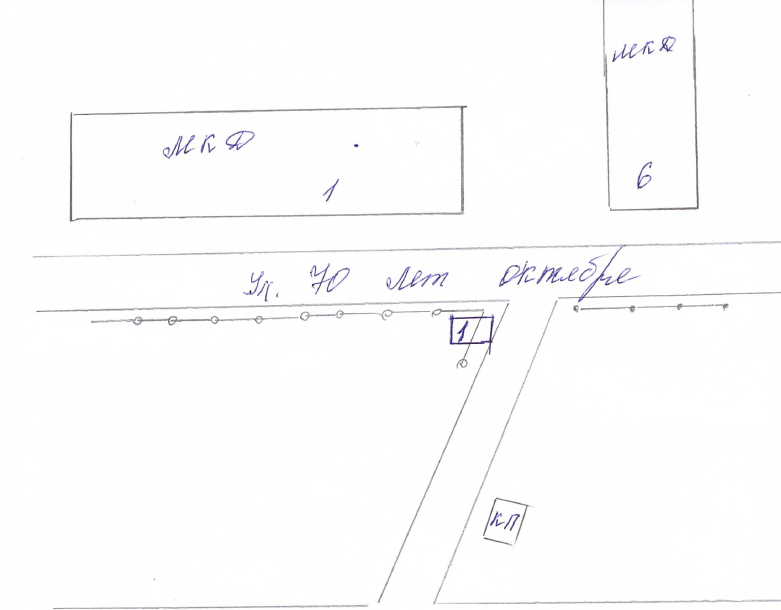 МКД
МКД
1
6
Ул. 70 лет октября
1
КП